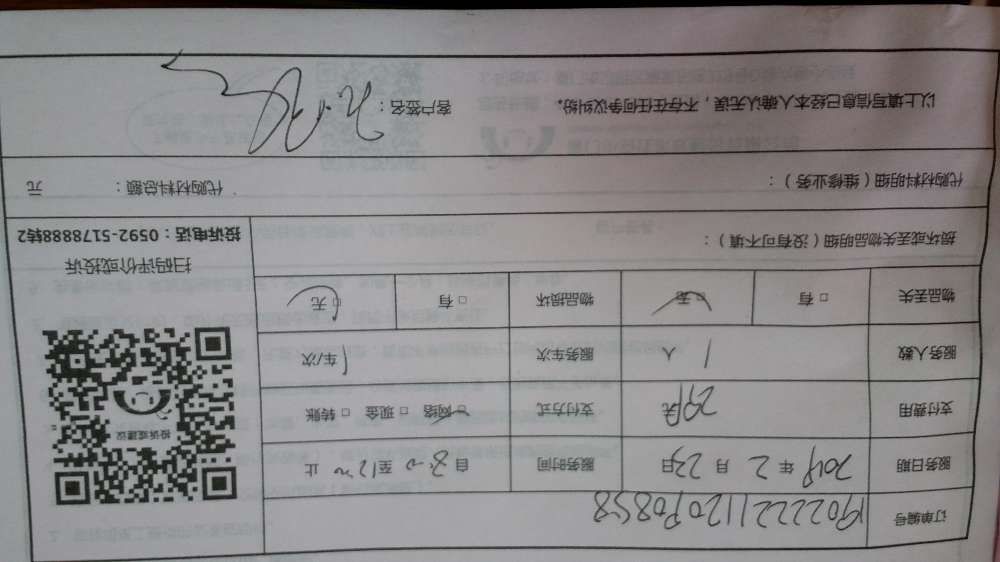 订单编号 1902221120908858
服务日期 2019年 2 月 23日 服务时间 自 8:00 至12:00 止
支付费用 299元 支付方式 □网络 □现金 □转账
服务人数 1 人 服务车次 1车/次
物品丢失 □有 □无 物品损坏 □有 □无
投诉或建议
扫码评价或投诉
投诉电话：0592-5178888转2
损坏或丢失物品明细（没有可不填）：
代购材料明细（维修业务）： 代购材料总额： 元
以上填写信息已经本人确认无误，不存在任何争议纠纷。 客户签名：